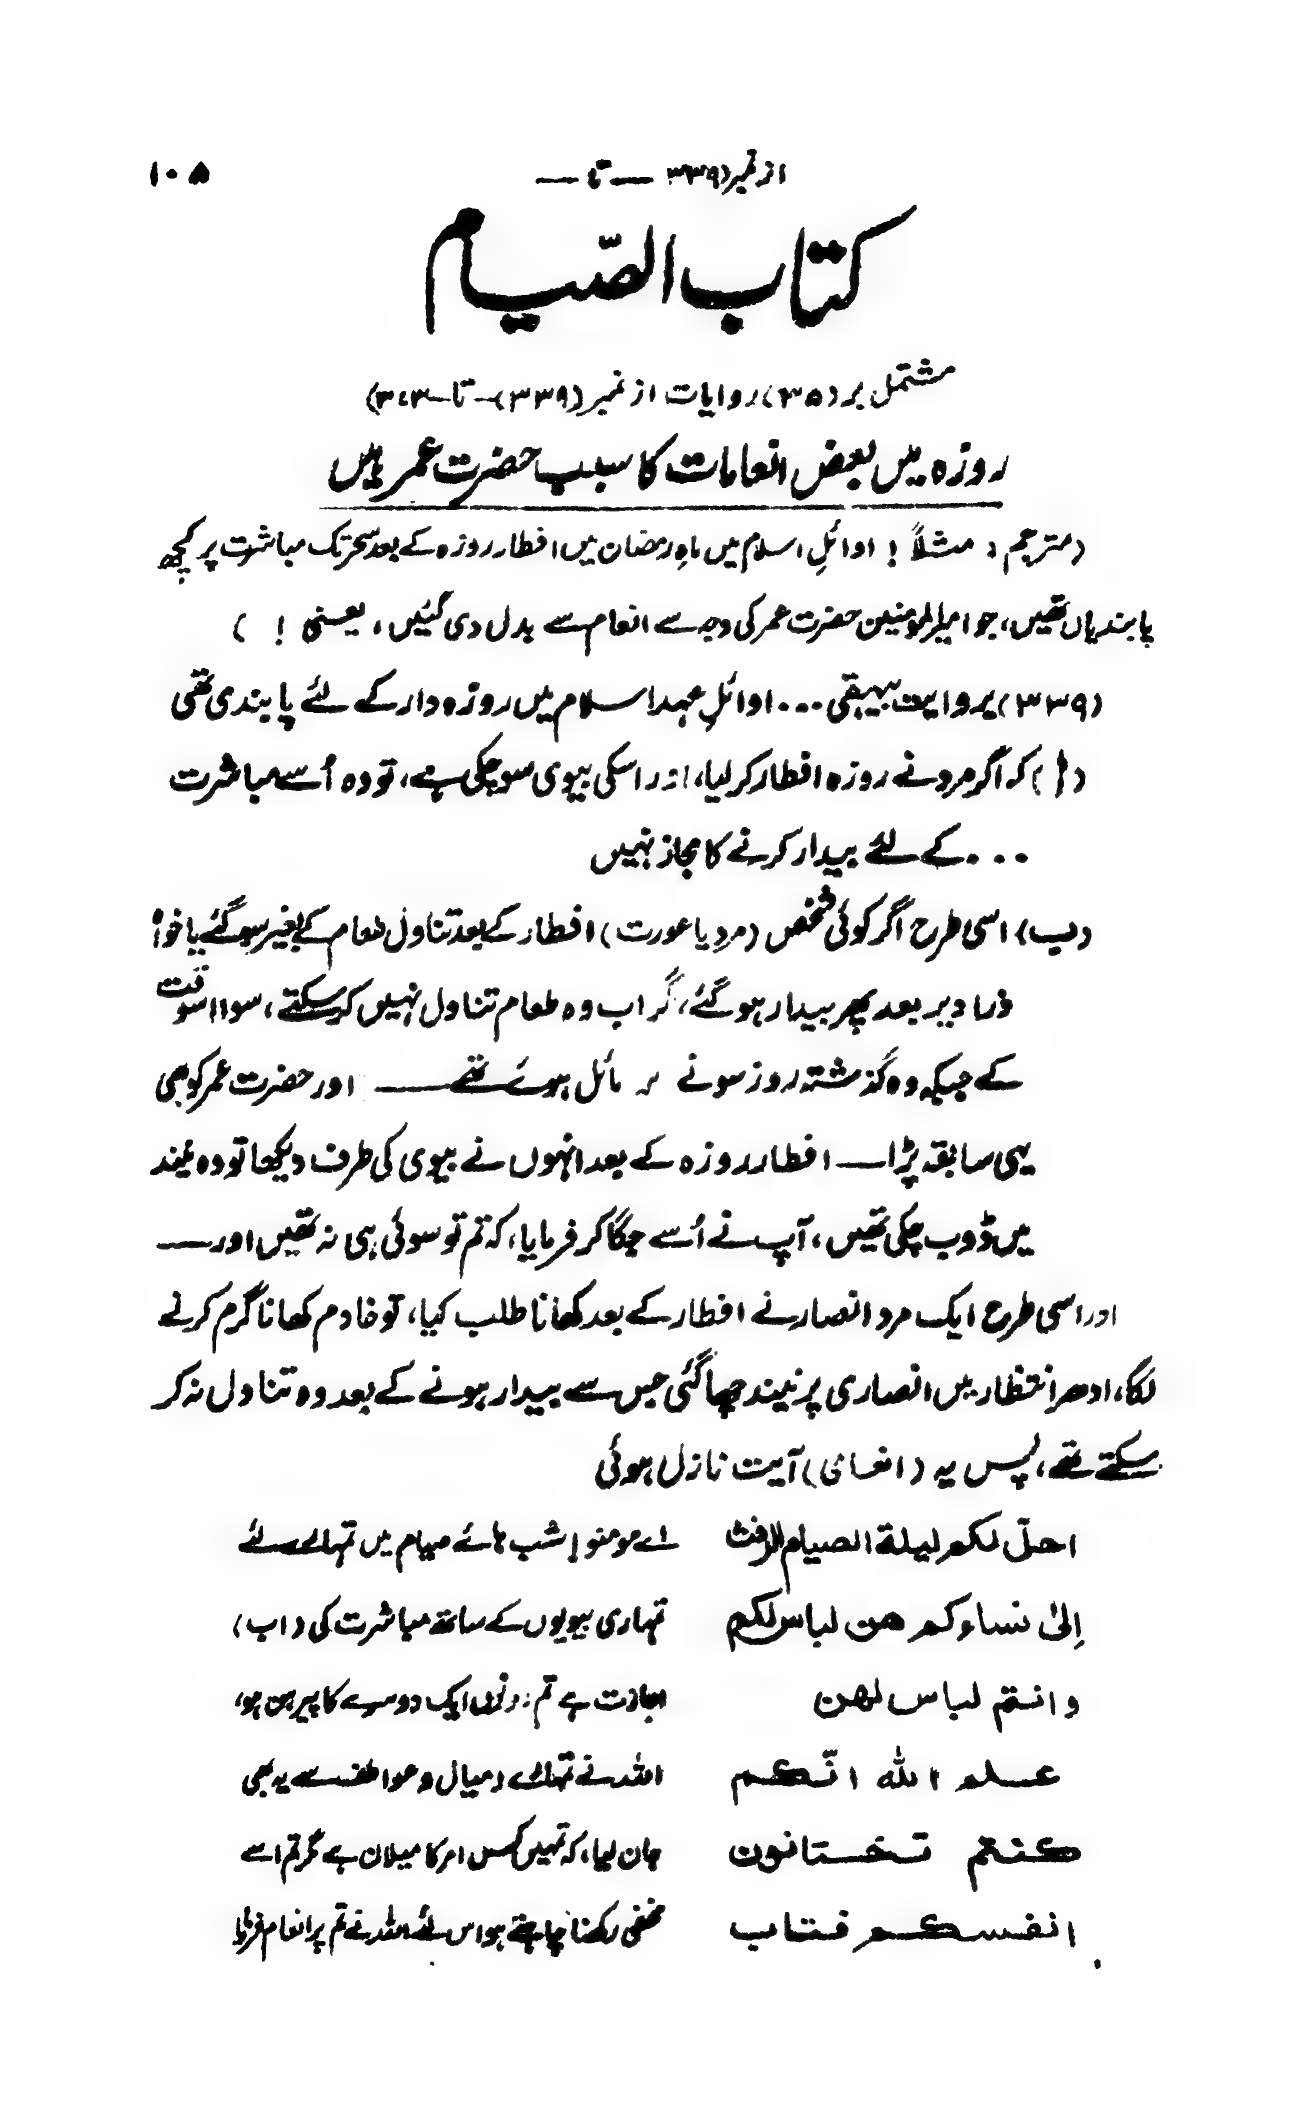 از نمبر (۳۳۹ — تا — ۱۰۵
کتاب الصّیام
مشتمل بر (۳۵) روایات از نمبر (۳۳۹)۔ تا ۔۳۷۳)
روزہ میں بعض انعامات کا سبب حضرت عمر ہیں
(مترجم : مثلاً ! اوائلِ اسلام میں ماہِ رمضان میں افطار روزہ کے بعد سحر تک مباشرت پر کچھ
پابندیاں تھیں، جو امیر المومنین حضرت عمر کی وجہ سے انعام سے بدل دی گئیں، یعنی ! )
(۳۳۹) بروایت بیہقی ... اوائلِ عہد اسلام میں روزہ دار کے لئے پابندی تھی
(ا) کہ اگر مرد نے روزہ افطار کر لیا، اور اسکی بیوی سو چکی ہے، تو وہ اُسے مباشرت
... کے لئے بیدار کرنے کا مجاز نہیں
(ب) اسی طرح اگر کوئی شخص (مرد یا عورت) افطار کے بعد تناول طعام کے بغیر سو گئے یا خواہ
ذرا دیر بعد پھر بیدار ہو گئے، گر اب وہ طعام تناول نہیں کر سکتے، سوا اسوقت
کے جبکہ وہ گذشتہ روز سونے پر مائل ہوئے تھے — اور حضرت عمر کو بھی
یہی سابقہ پڑا — افطار روزہ کے بعد انہوں نے بیوی کی طرف دیکھا تو وہ نیند
میں ڈوب چکی تھیں، آپ نے اُسے جگا کر فرمایا، کہ تم تو سوئی ہی نہ تھیں اور —
اور اسی طرح ایک مرد انصار نے افطار کے بعد کھانا طلب کیا، تو خادم کھانا گرم کرنے
لگا، ادھر انتظار میں انصاری پر نیند چھا گئی جس سے بیدار ہونے کے بعد وہ تناول نہ کر
سکتے تھے، پس یہ (انعامی) آیت نازل ہوئی
احلّ لکم لیلۃ الصیام الرفث اے مومنو! شب ہائے صیام میں تمہارے لئے
اِلیٰ نساءکم ھن لباس لکم تمہاری بیویوں کے ساتھ مباشرت کی (اب)
و انتم لباس لھن اجازت ہے تم دونوں ایک دوسرے کا پیرہن ہو،
علم اللہ انّکم اللہ نے تمہارے میال و عواطف سے یہ بھی
کنتم تختانون جان لیا، کہ تمہیں کس امر کا میلان ہے مگر تم اسے
انفسکم فتاب مخفی رکھنا چاہتے ہو اس لئے اللہ نے تم پر انعام فرمایا